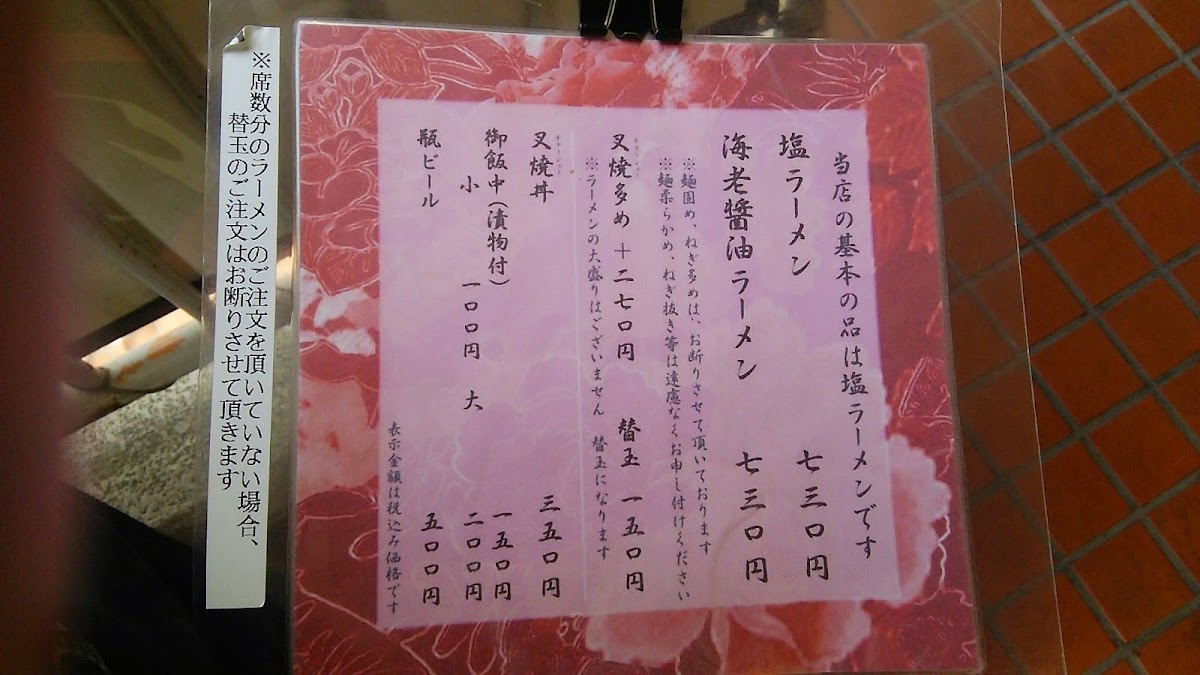 当店の基本の品は塩ラーメンです
塩ラーメン 七三〇円
海老醤油ラーメン 七三〇円
※麺固め、ねぎ多めは、お断りさせて頂いております
※麺柔らかめ、ねぎ抜き等は遠慮なくお申し付けください
叉焼多め+二七〇円 替玉 一五〇円
※ラーメンの大盛りはございません 替玉になります
叉焼丼 三五〇円
御飯中(漬物付) 一五〇円
小 一〇〇円 大 二〇〇円
瓶ビール 五〇〇円
表示金額は税込み価格です
※席数分のラーメンのご注文を頂いていない場合、
替玉のご注文はお断りさせて頂きます